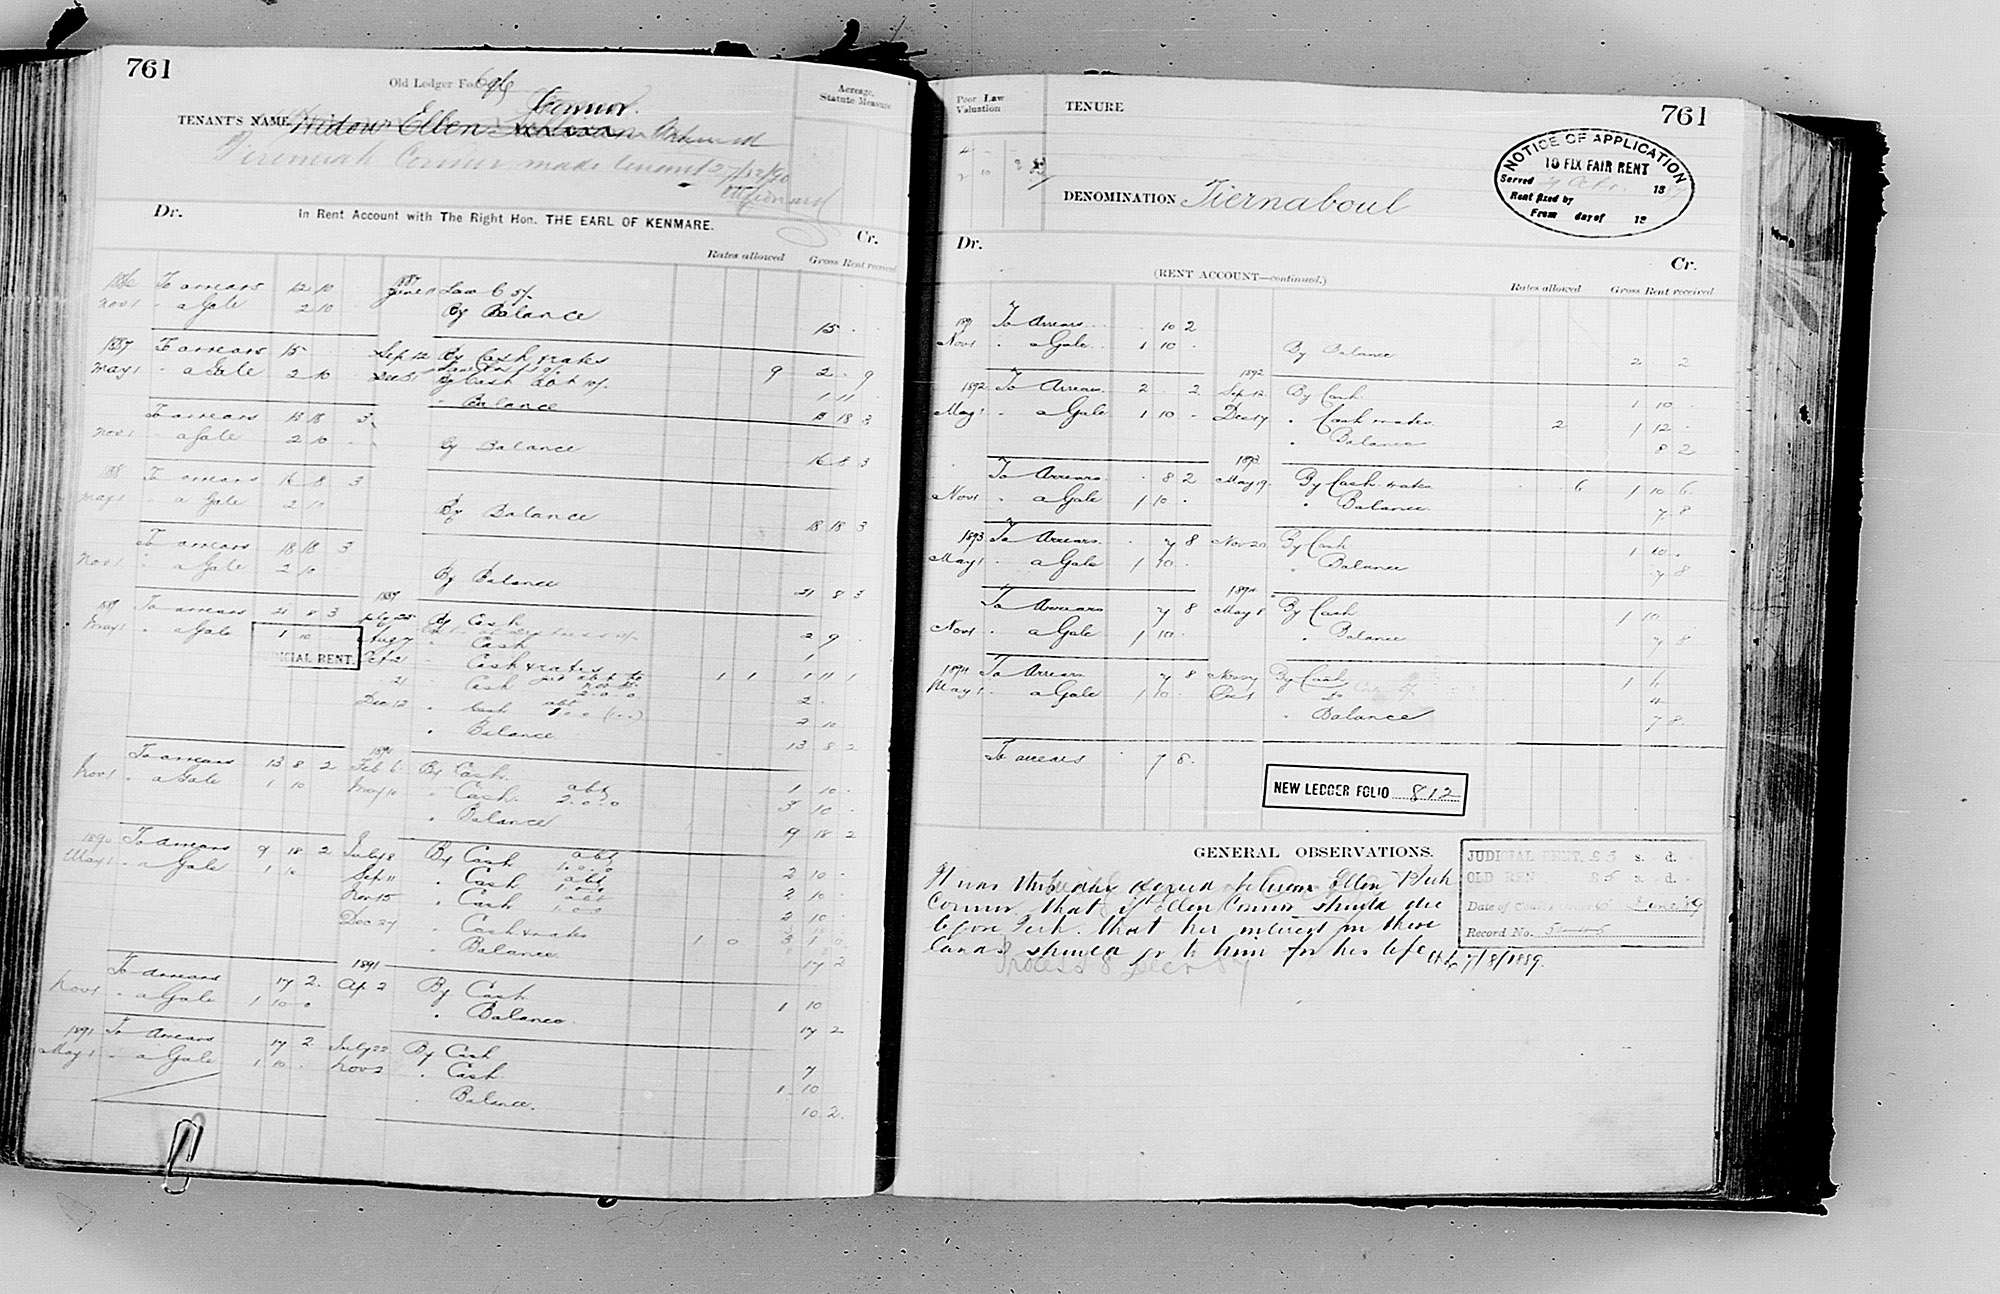 761
Old Ledger Fo. 696
Acreage, Statute Measure
Connor.
TENANT'S NAME Widow Ellen
Jeremiah Connor made tenant 27/12/90
Dr. In Rent Account with The Right Hon. THE EARL OF KENMARE. Cr.
Rates allowed Gross Rent received
1886 To arrears 12 10 1887 June 11 Law C 5/-
Nov 1 " a Gale 2 10 By Balance 15
1887 To arrears 15 Sep 12 By Cash & rates 9 2 . 9
May 1 " a Gale 2 10 Dec 31 By Cash 1 11
" Balance 13 18 3
To arrears 13 18 3
Nov 1 " a Gale 2 10 By Balance 16 8 3
1888 To arrears 16 8 3
May 1 " a Gale 2 10 By Balance 18 18 3
To arrears 18 18 3
Nov 1 " a Gale 2 10 By Balance 21 8 3
1889 To arrears 21 8 3 1889 By Cash 2 9
May 1 " a Gale 1 10 Aug 7 " Cash 1
JUDICIAL RENT. Oct 21 " Cash & rates 1 1 1 11 1
21 " Cash 2.0.0 2
Dec 12 " Cash abt 2 10
" Balance 13 8 2
To arrears 13 8 2 1890 Feb 6 By Cash 1 10
Nov 1 " a Gale 1 10 May 10 " Cash abt 2.0.0 3 10
" Balance 9 18 2
1890 To arrears 9 18 2 July 8 By Cash abt 1.0.0 2 10
May 1 " a Gale 1 10 Sep 11 " Cash abt 1.0.0 2 10
Nov 15 " Cash abt 1.0.0 2 10
Dec 27 " Cash & rates 1 0 3 1 0
" Balance 17 2
To arrears 17 2 1891 Ap 2 By Cash 1 10
Nov 1 " a Gale 1 10 0 " Balance 17 2
1891 To Arrears 17 2 July 22 By Cash 7
May 1 " a Gale 1 10 Nov 3 " Cash 1 10
" Balance 10 2
Poor Law Valuation
TENURE
761
DENOMINATION Tiernaboul
NOTICE OF APPLICATION
TO FIX FAIR RENT
Served 18
Rent fixed by
From day of 18
Dr. (RENT ACCOUNT—continued.) Cr.
Rates allowed Gross Rent received
1891 To Arrears 10 2
Nov 1 " a Gale 1 10 By Balance 2 2
1892 To Arrears 2 2 1892 Sep 12 By Cash 1 10
May 1 " a Gale 1 10 Dec 17 " Cash & rates 2 1 12
" Balance 8 2
To Arrears 8 2 1893 May 19 By Cash & rates 6 1 10 6
Nov 1 " a Gale 1 10 " Balance 7 8
1893 To Arrears 7 8 Nov 20 By Cash 1 10
May 1 " a Gale 1 10 " Balance 7 8
To Arrears 7 8 1894 May 8 By Cash 1 10
Nov 1 " a Gale 1 10 " Balance 7 8
1894 To Arrears 7 8 By Cash 1 6
May 1 " a Gale 1 10 Do 4
" Balance 7 8
To arrears 7 8
NEW LEDGER FOLIO 812
GENERAL OBSERVATIONS.
It was this day agreed between Ellen & Jerh
Connor that if Ellen Connor should die
before Jerh. that her interest in these
lands should go to him for his life 7/8/1889.
JUDICIAL RENT, £3 s. d.
OLD RENT £5 s. d.
Date of June 89
Record No.